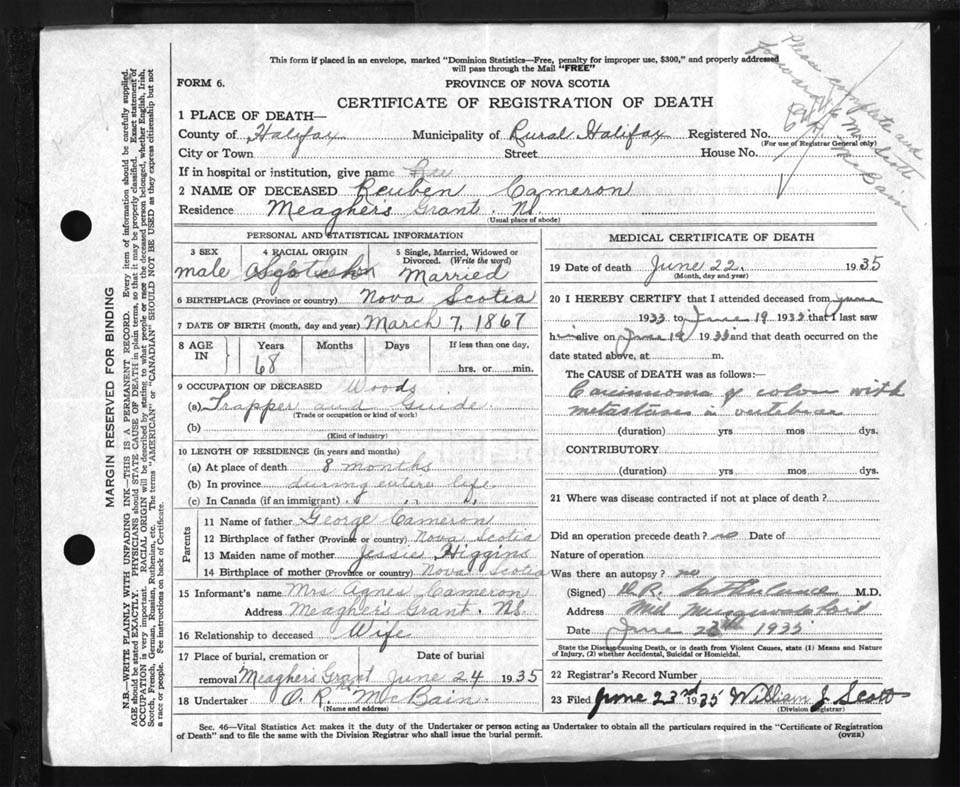 This form if placed in an envelope, marked "Dominion Statistics—Free, penalty for improper use, $300," and properly addressed
will pass through the Mail "FREE"
Please complete and
forward to Mr. Scott
FORM 6.
PROVINCE OF NOVA SCOTIA
CERTIFICATE OF REGISTRATION OF DEATH
1 PLACE OF DEATH—
County of Halifax Municipality of Rural Halifax Registered No.
(For use of Registrar General only)
City or Town Street House No.
If in hospital or institution, give name
2 NAME OF DECEASED Reuben Cameron
Residence Meagher's Grant. NS.
(Usual place of abode)
PERSONAL AND STATISTICAL INFORMATION
3 SEX 4 RACIAL ORIGIN 5 Single, Married, Widowed or Divorced. (Write the word)
male Married
6 BIRTHPLACE (Province or country) Nova Scotia
7 DATE OF BIRTH (month, day and year) March 7, 1867
8 AGE IN Years Months Days If less than one day,
68 hrs. or min.
9 OCCUPATION OF DECEASED Woods
(a) Trapper and Guide
(Trade or occupation or kind of work)
(b)
(Kind of industry)
10 LENGTH OF RESIDENCE (in years and months)
(a) At place of death 8 months
(b) In province during entire life
(c) In Canada (if an immigrant) " " "
Parents
11 Name of father George Cameron
12 Birthplace of father (Province or country) Nova Scotia
13 Maiden name of mother Jessie Higgins
14 Birthplace of mother (Province or country) Nova Scotia
15 Informant's name Mrs Agnes Cameron
Address Meagher's Grant. NS.
16 Relationship to deceased Wife
17 Place of burial, cremation or removal Date of burial
Meagher's Grant June 24 1935
18 Undertaker O. R. McBain.
(Name and address)
MEDICAL CERTIFICATE OF DEATH
19 Date of death June 22, 1935
(Month, day and year)
20 I HEREBY CERTIFY that I attended deceased from
1933 to June 19 1935 that I last saw
him alive on June 19 1935 and that death occurred on the
date stated above, at m.
The CAUSE OF DEATH was as follows:—
Carcinoma of colon with
metastases in vertebrae
(duration) yrs mos dys.
CONTRIBUTORY
(duration) yrs mos dys.
21 Where was disease contracted if not at place of death?
Did an operation precede death? no Date of
Nature of operation
Was there an autopsy? no
(Signed) D.R. Sutherland M.D.
Address Mid Musquodoboit
Date June 23th 1935
State the Disease causing Death, or in death from Violent Causes, state (1) Means and Nature
of Injury, (2) whether Accidental, Suicidal or Homicidal.
22 Registrar's Record Number
23 Filed June 23rd 1935 William J. Scott
(Division Registrar)
Sec. 46—Vital Statistics Act makes it the duty of the Undertaker or person acting as Undertaker to obtain all the particulars required in the "Certificate of Registration
of Death" and to file the same with the Division Registrar who shall issue the burial permit. (OVER)
MARGIN RESERVED FOR BINDING
N.B.—WRITE PLAINLY WITH UNFADING INK—THIS IS A PERMANENT RECORD. Every item of information should be carefully supplied.
AGE should be stated EXACTLY. PHYSICIANS should STATE CAUSE OF DEATH in plain terms, so that it may be properly classified. Exact statement of
OCCUPATION is very important. RACIAL ORIGIN will be described by stating to what people or race the deceased person belonged, whether English, Irish,
Scotch, French, German, Russian, Ruthenian, etc. The terms "AMERICAN" or "CANADIAN" SHOULD NOT BE USED as they express citizenship but not
a race or people. See instructions on back of Certificate.